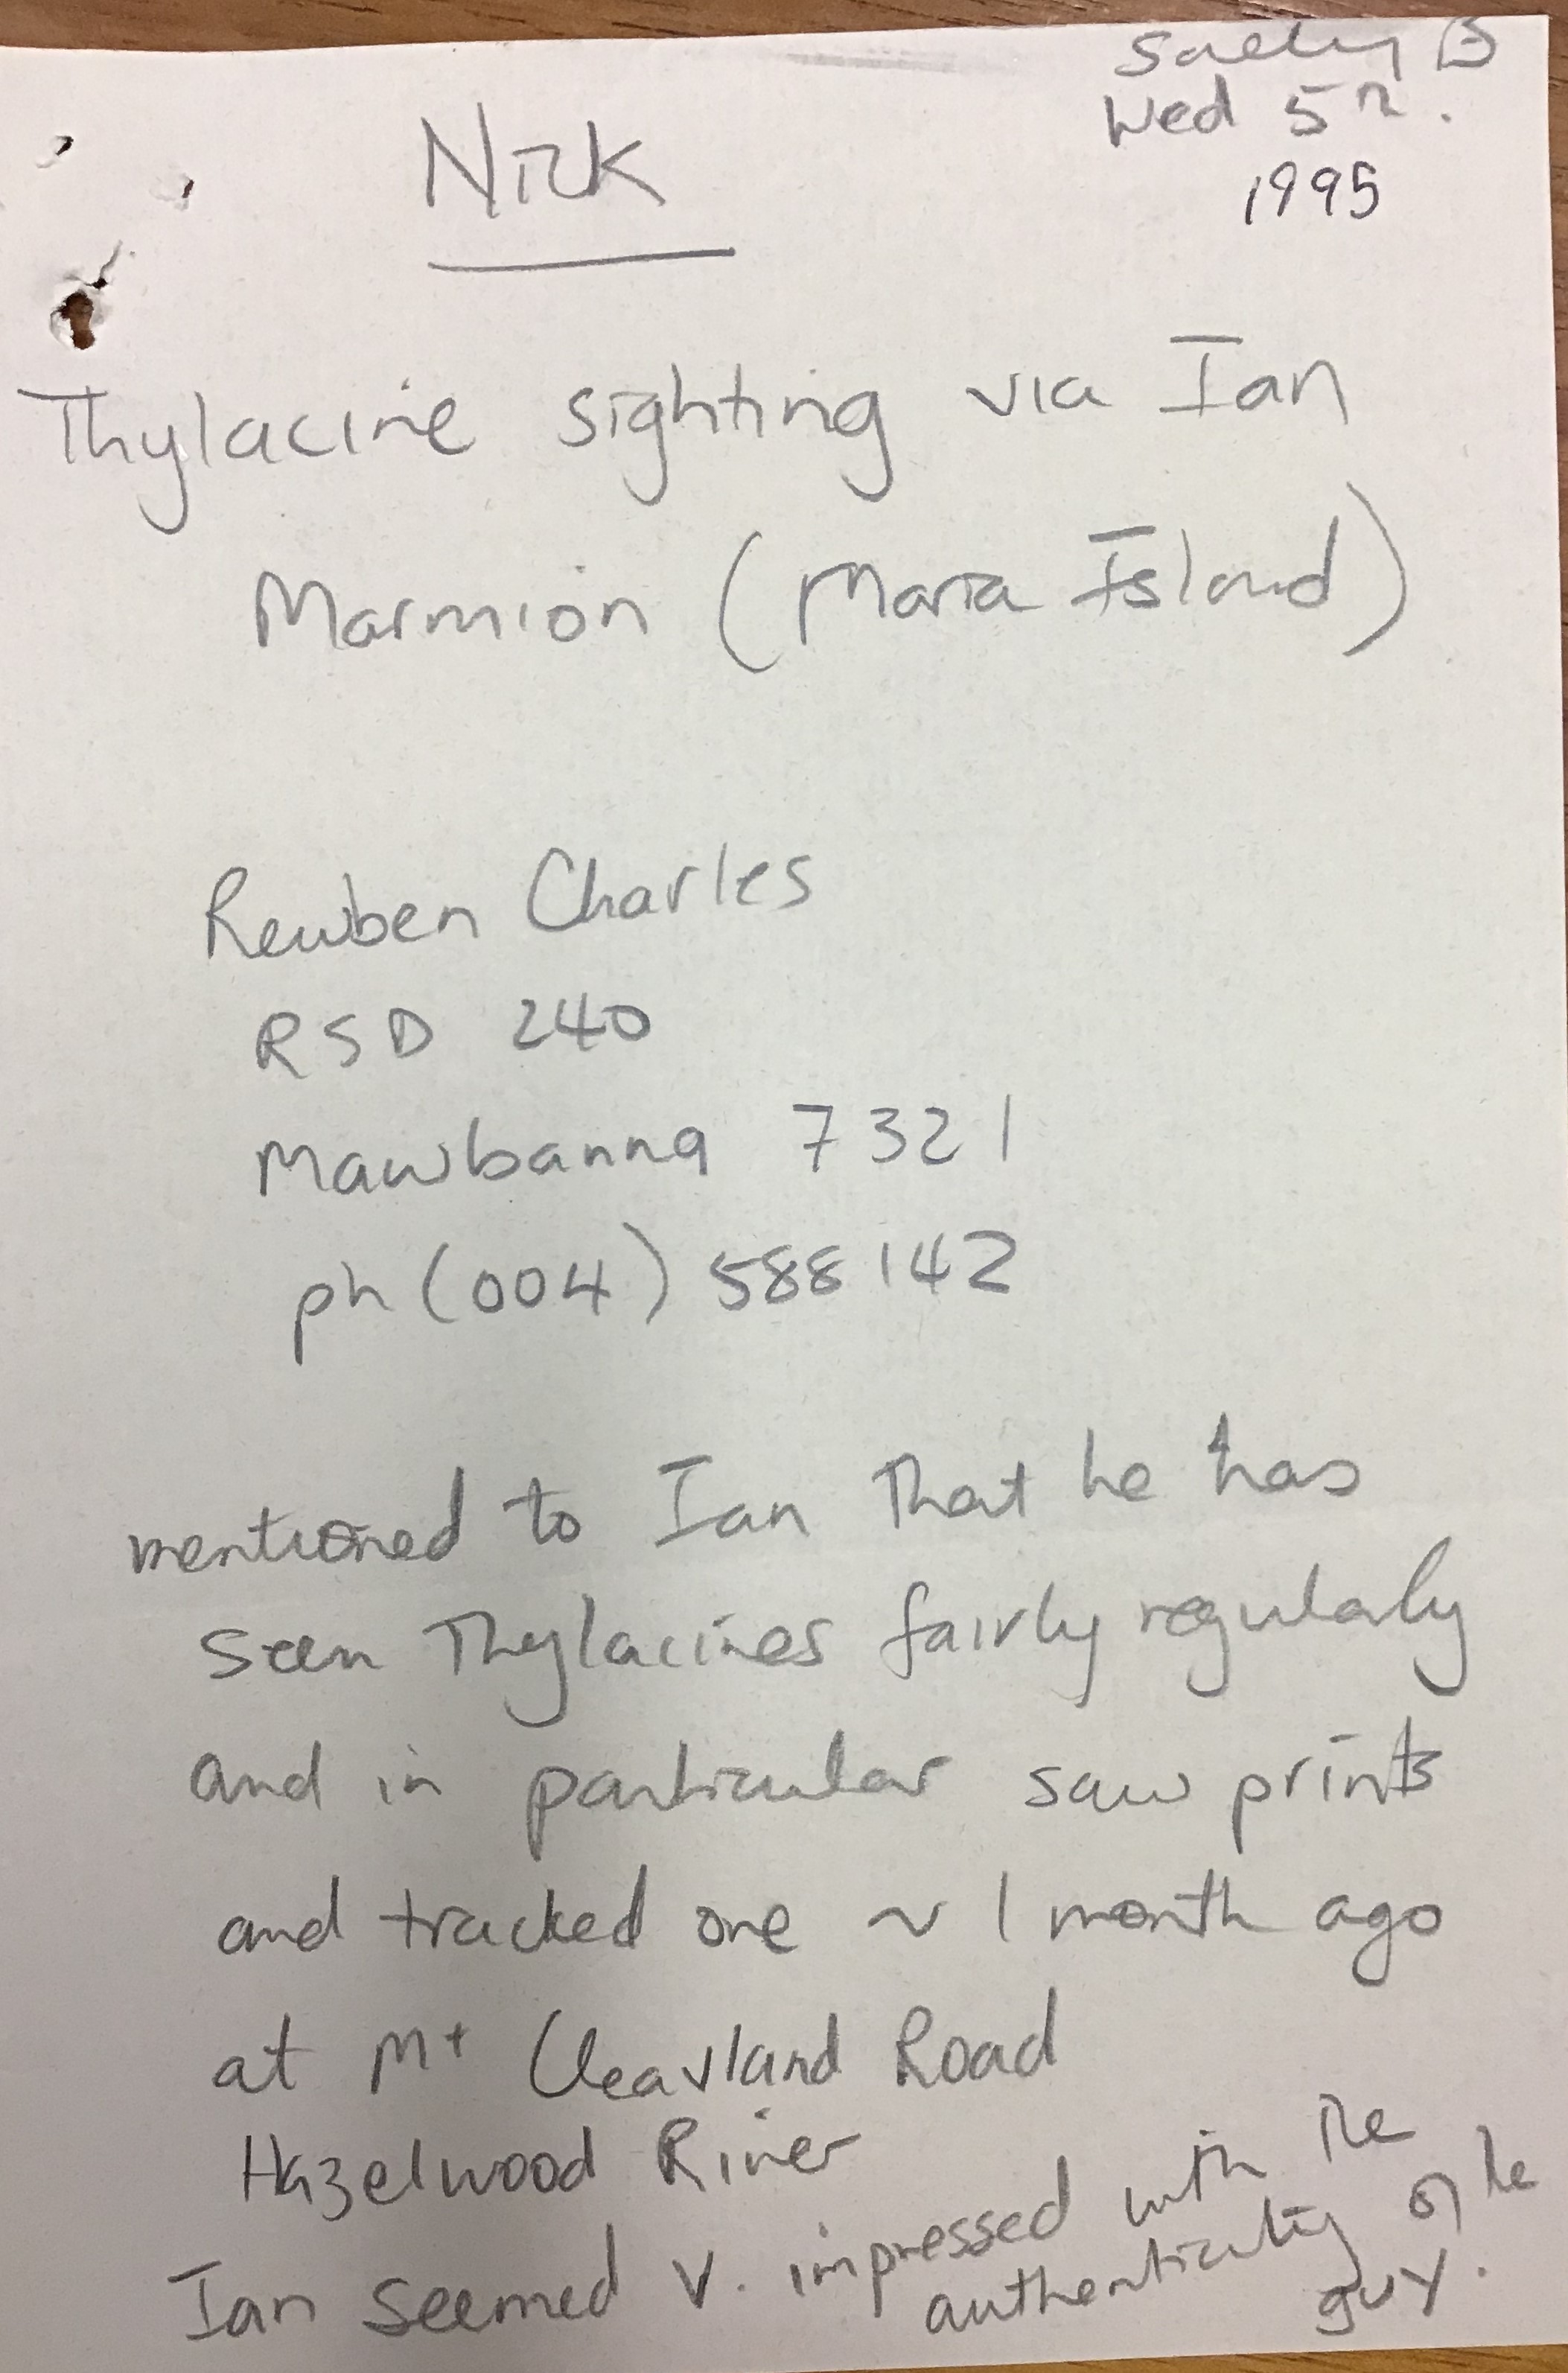 Sally B
Wed 5th.
1995
Nick
Thylacine sighting via Ian
Marmion (Maria Island)
Reuben Charles
RSD 240
Mawbanna 7321
ph (004) 588142
mentioned to Ian that he has
seen Thylacines fairly regularly
and in particular saw prints
and tracked one ~ 1 month ago
at Mt Cleavland Road
Hazelwood River
Ian seemed v. impressed with the
authenticity of the
guy.